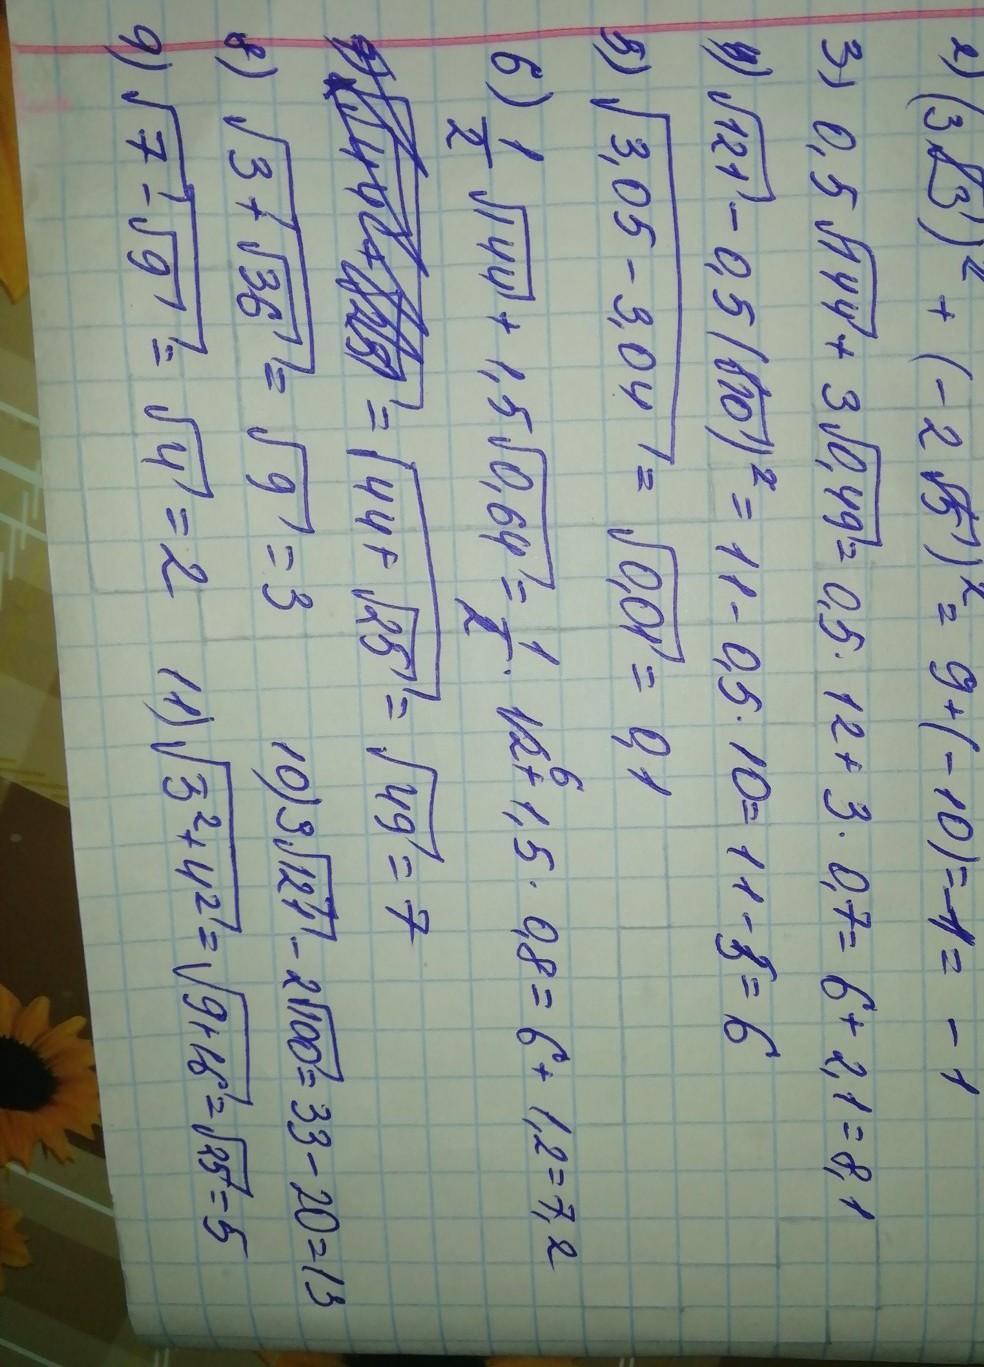 2) (3√3)² + (-2√5)² = 9+(-10)=-1= -1
3) 0,5√144 + 3√0,49 = 0,5 · 12 + 3 · 0,7= 6 + 2,1 = 8,1
4) √121 - 0,5(√10)² = 11 - 0,5 · 10= 11-5= 6
5) √3,05 - 3,04 = √0,01 = 0,1
6) 1/2 √144 + 1,5√0,64 = 1/2 · 12 6 + 1,5 · 0,8 = 6 + 1,2 = 7,2
= √44+ √25 = √49 = 7
8) √3+√36 = √9 = 3
10) 3√121 - 2√100 = 33 - 20 = 13
9) √7-√9 = √4 = 2
11) √3²+4² = √9+16 = √25 = 5